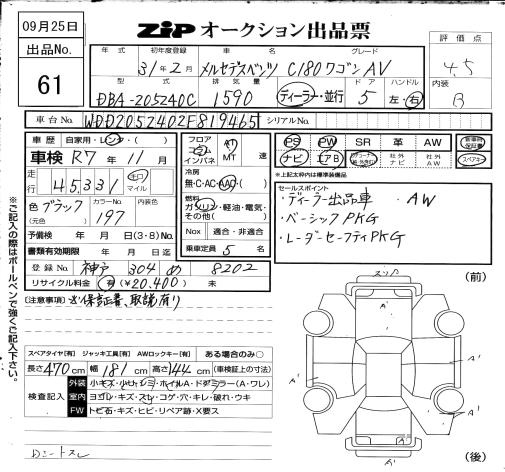 09月25日
出品No.
61
ZiP オークション出品票
年式 初年度登録 車名 グレード
31年2月 メルセデスベンツ C180ワゴン AV
型式 排気量 ドア ハンドル
DBA-205240C 1590 ディーラー・並行 5 左・右
評価点
4.5
内装
B
車台No. WDD2052402F819465 シリアルNo.
車歴 自家用・レンタ
車検 R7年 11月
走行 45,331 キロ マイル
色 ブラック (元色) カラーNo. 197 内装色
予備検 年 月 日(3・8)No.
書類有効期限 年 月 日迄
登録No. 神戸 304 め 8202
リサイクル料金 有(¥20,400) 未
フロア コラム インパネ AT MT 速
冷房 無・C・AC・AAC
燃料 ガソリン・軽油・電気・その他( )
Nox 適合・非適合
乗車定員 5 名
PS PW SR 革 AW
ナビ エアB 社外ナビ 社外AW
新車時保証書
スペアキー
※上記太枠内は標準装備品
セールスポイント
・ディーラー出品車 ・AW
・ベーシックPKG
・レーダーセーフティPKG
[注意事項] 保証書、取説有り
※ご記入の際はボールペンで強くご記入下さい。
スペアタイヤ[有] ジャッキ工具[有] AWロックキー[有] ある場合のみ○
長さ 470 cm 幅 181 cm 高さ 144 cm (車検証上の寸法)
検査記入
外装 小キズ・小ヒッコミ・ホイルA・ドアミラー(A・ワレ)
室内 ヨゴレ・キズ・スレ・コゲ・穴・キレ・破れ・ウキ
FW トビ石・キズ・ヒビ・リペア跡・X要ス
Dシートスレ
(前)
スリハ
A'
A'
A'
A'
A'
A'
(後)